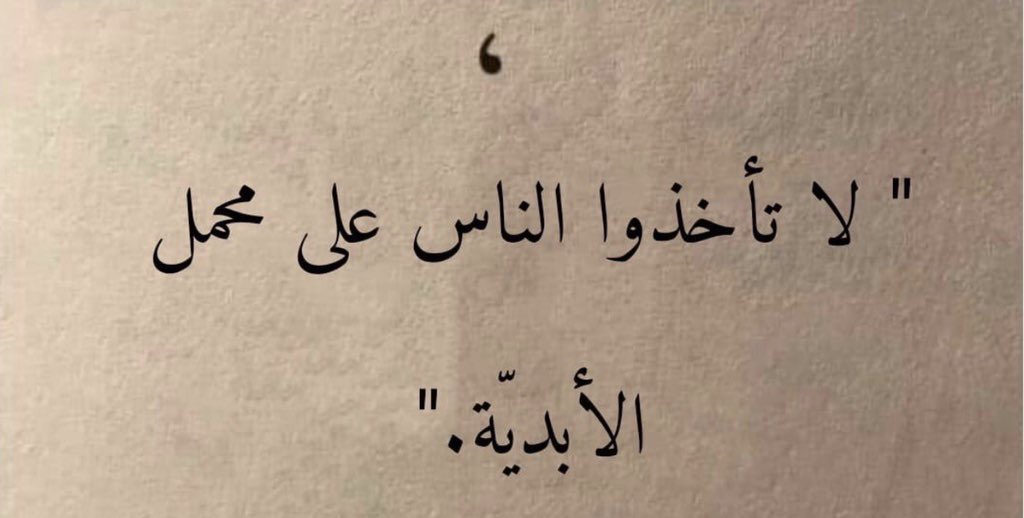 ،
" لا تأخذوا الناس على محمل
الأبديّة."